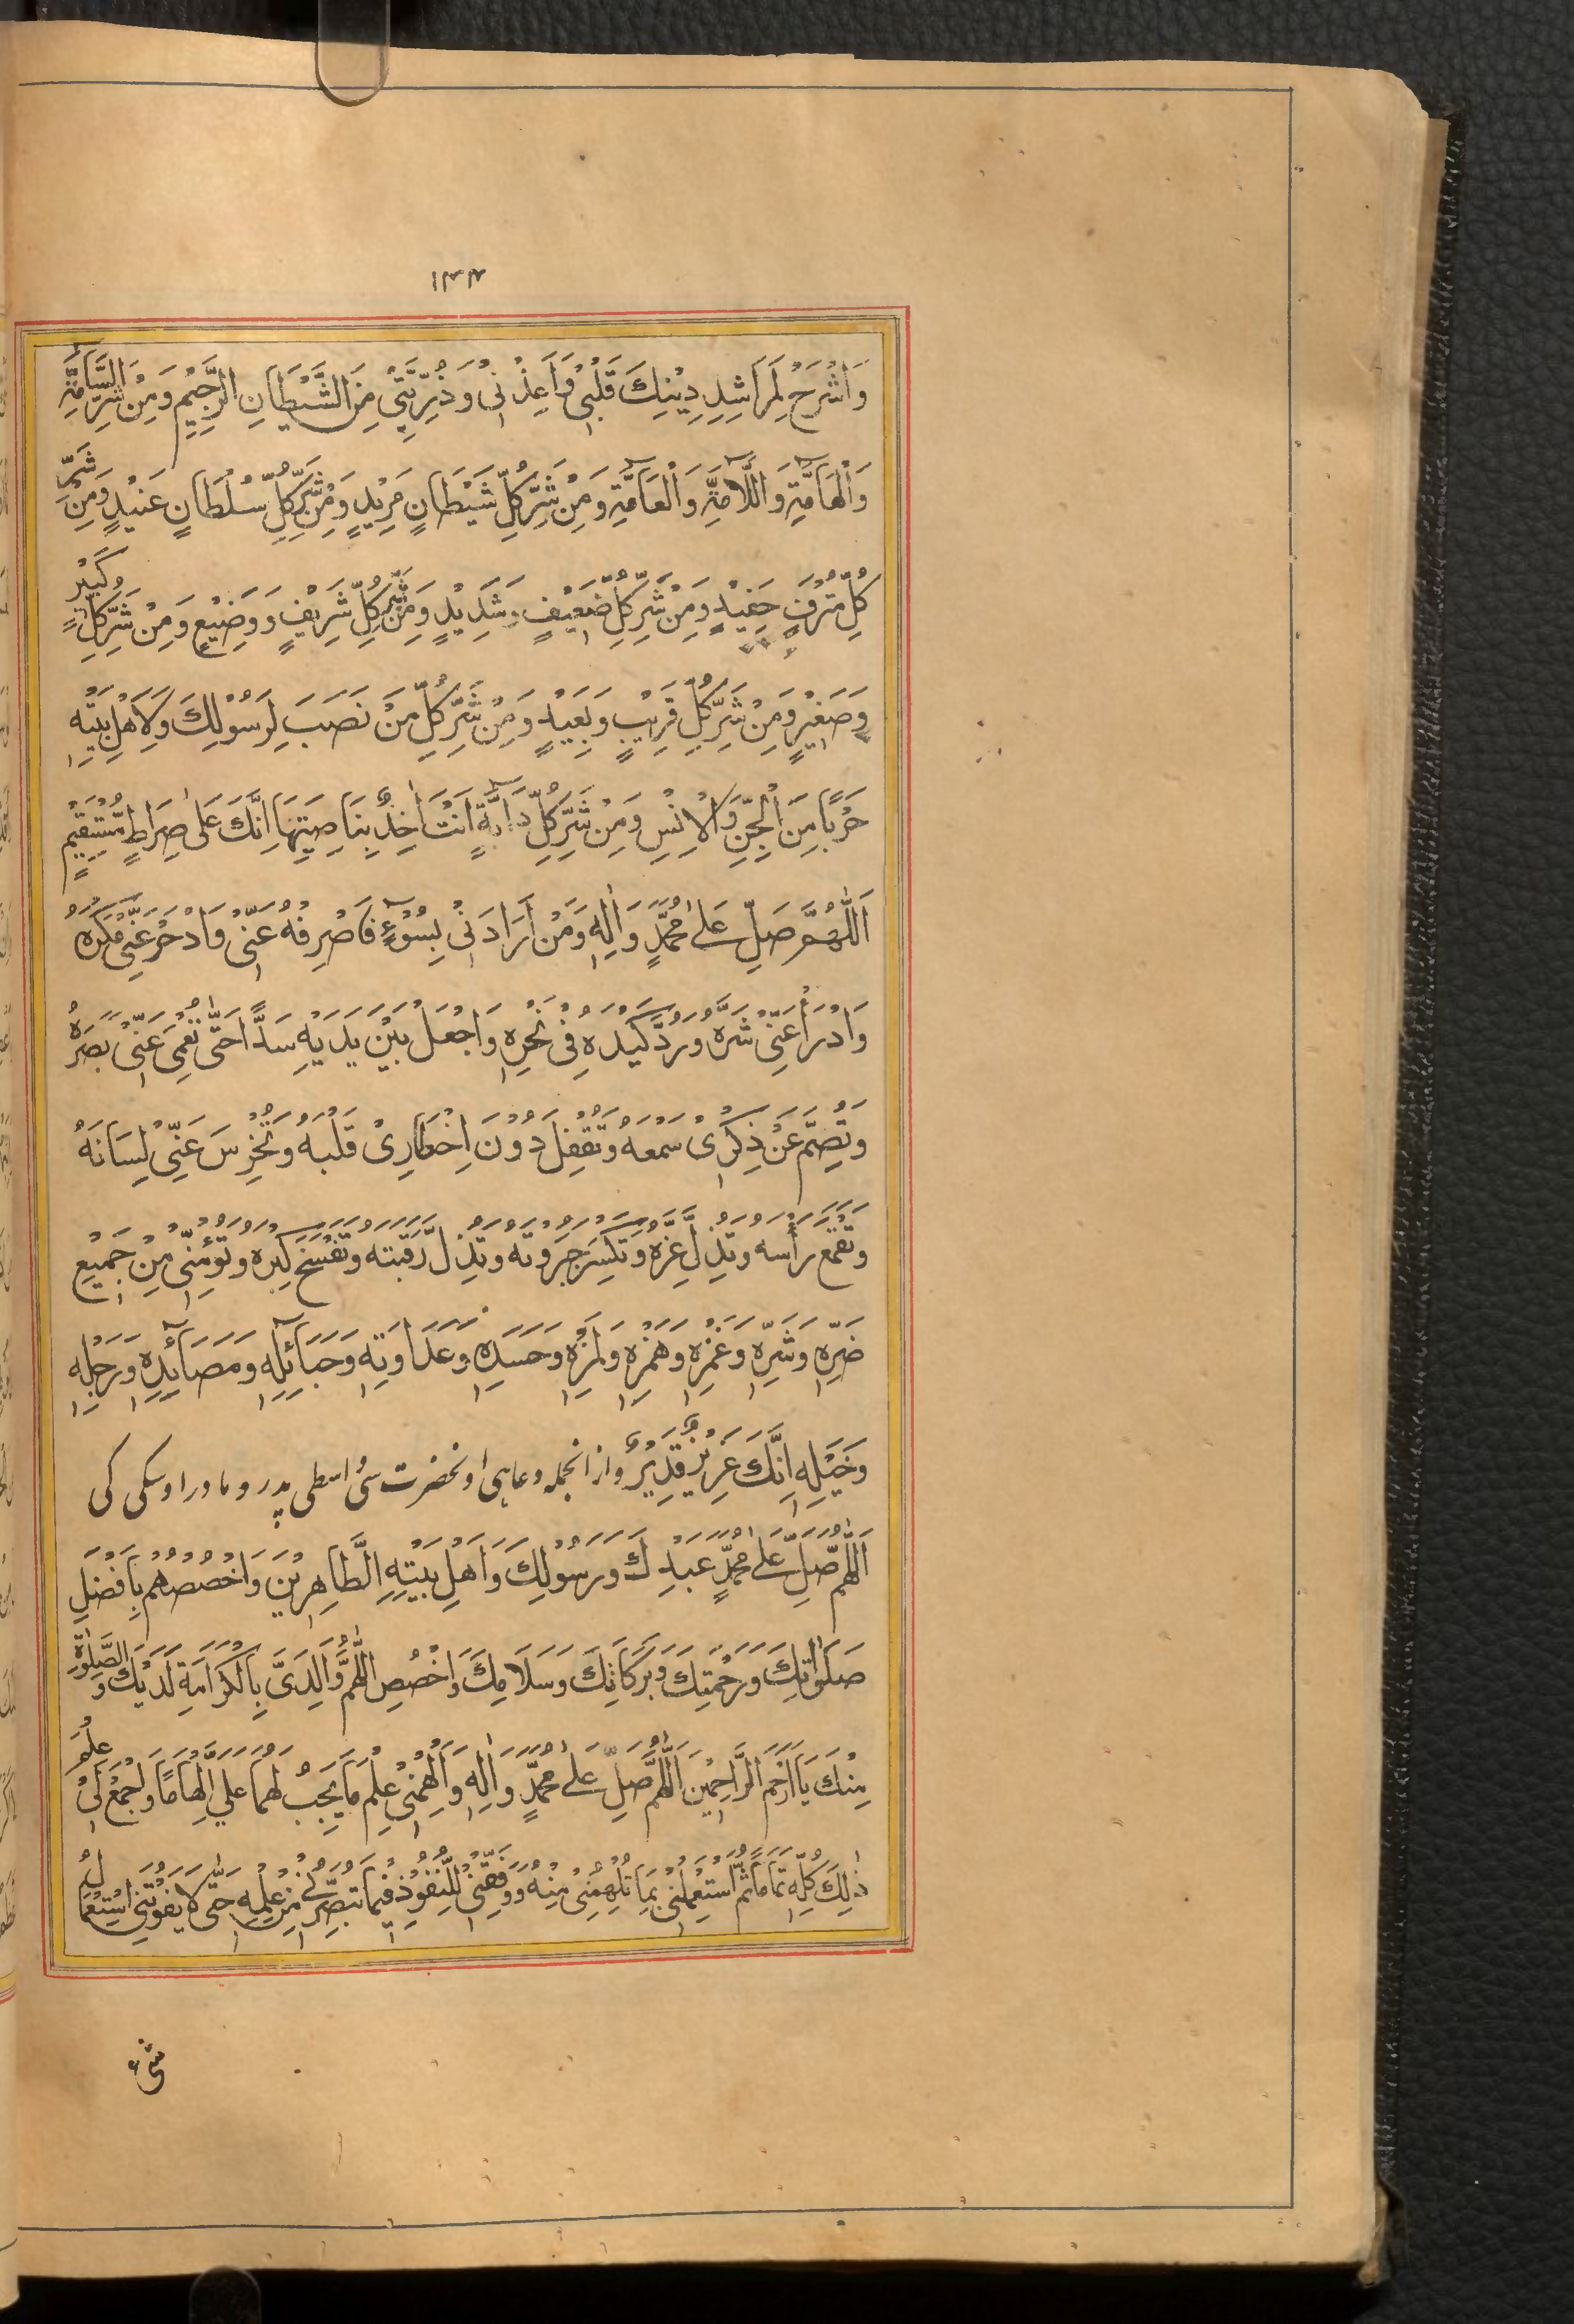 ۱۴۴
وَاشْرَحْ لِمَرَاشِدِ دِيْنِكَ قَلْبِيْ وَاَعِذْنِيْ وَذُرِّيَّتِيْ مِنَ الشَّيْطَانِ الرَّجِيْمِ وَمِنْ شَرِّ السَّآمَّةِ
وَالْهَآمَّةِ وَاللَّآمَّةِ وَالْعَآمَّةِ وَمِنْ شَرِّ كُلِّ شَيْطَانٍ مَرِيْدٍ وَمِنْ شَرِّ كُلِّ سُلْطَانٍ عَنِيْدٍ وَمِنْ شَرِّ
كُلِّ مُتْرَفٍ حَفِيْدٍ وَمِنْ شَرِّ كُلِّ ضَعِيْفٍ وَشَدِيْدٍ وَمِنْ شَرِّ كُلِّ شَرِيْفٍ وَوَضِيْعٍ وَمِنْ شَرِّ كُلِّ كَبِيْرٍ
وَصَغِيْرٍ وَمِنْ شَرِّ كُلِّ قَرِيْبٍ وَبَعِيْدٍ وَمِنْ شَرِّ كُلِّ مَنْ نَصَبَ لِرَسُوْلِكَ وَلِاَهْلِ بَيْتِهِ
حَرْبًا مِنَ الْجِنِّ وَالْاِنْسِ وَمِنْ شَرِّ كُلِّ دَآبَّةٍ اَنْتَ اٰخِذٌ بِنَاصِيَتِهَا اِنَّكَ عَلٰى صِرَاطٍ مُّسْتَقِيْمٍ
اَللّٰهُمَّ صَلِّ عَلٰى مُحَمَّدٍ وَاٰلِهِ وَمَنْ اَرَادَنِيْ بِسُوْٓءٍ فَاصْرِفْهُ عَنِّيْ وَادْحَرْ عَنِّيْ مَكْرَهُ
وَادْرَأْ عَنِّيْ شَرَّهُ وَرُدَّ كَيْدَهُ فِيْ نَحْرِهِ وَاجْعَلْ بَيْنَ يَدَيْهِ سَدًّا حَتّٰى تُعْمِيَ عَنِّيْ بَصَرَهُ
وَتُصِمَّ عَنْ ذِكْرِيْ سَمْعَهُ وَتُقْفِلَ دُوْنَ اِخْطَارِيْ قَلْبَهُ وَتُخْرِسَ عَنِّيْ لِسَانَهُ
وَتَقْمَعَ رَأْسَهُ وَتُذِلَّ عِزَّهُ وَتَكْسِرَ جَبَرُوْتَهُ وَتُذِلَّ رَقَبَتَهُ وَتَفْسَخَ كِبْرَهُ وَتُؤْمِنَنِّيْ مِنْ جَمِيْعِ
ضَرِّهِ وَشَرِّهِ وَغَمْزِهِ وَهَمْزِهِ وَلَمْزِهِ وَحَسَدِهِ وَعَدَاوَتِهِ وَحَبَآئِلِهِ وَمَصَآئِدِهِ وَرَجِلِهِ
وَخَيْلِهِ اِنَّكَ عَزِيْزٌ قَدِيْرٌ وازانجملہ دعا ہی اونحضرت سی واسطی پدر و مادر اوسکی کی
اَللّٰهُمَّ صَلِّ عَلٰى مُحَمَّدٍ عَبْدِكَ وَرَسُوْلِكَ وَاَهْلِ بَيْتِهِ الطَّاهِرِيْنَ وَاخْصُصْهُمْ بِاَفْضَلِ
صَلَوَاتِكَ وَرَحْمَتِكَ وَبَرَكَاتِكَ وَسَلَامِكَ وَاخْصُصِ اللّٰهُمَّ وَالِدَيَّ بِالْكَرَامَةِ لَدَيْكَ وَالصَّلٰوةِ
مِنْكَ يَا اَرْحَمَ الرَّاحِمِيْنَ اَللّٰهُمَّ صَلِّ عَلٰى مُحَمَّدٍ وَاٰلِهِ وَاَلْهِمْنِيْ عِلْمَ مَا يَجِبُ لَهُمَا عَلَيَّ اِلْهَامًا وَاجْمَعْ لِيْ عِلْمَ
ذٰلِكَ كُلِّهِ تَمَامًا ثُمَّ اسْتَعْمِلْنِيْ بِمَا تُلْهِمُنِيْ مِنْهُ وَوَفِّقْنِيْ لِلنُّفُوْذِ فِيْمَا تُبَصِّرُنِيْ مِنْ عِلْمِهِ حَتّٰى لَا يَفُوْتَنِيْ اسْتِعْمَالُ
شَيْءٍ